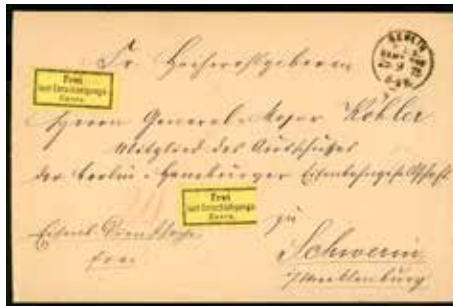 BERLIN
Sr. Hochwohlgeboren
Frei
laut Entschädigungs-
Conto.
Herrn General-Major Köhler
Mitglied des Ausschußes
der Berlin-Hamburger Eisenbahngesellschaft
Frei
laut Entschädigungs-
Conto.
zu
Eisenb. Dienstsache
frei
Schwerin
i/Mecklenburg